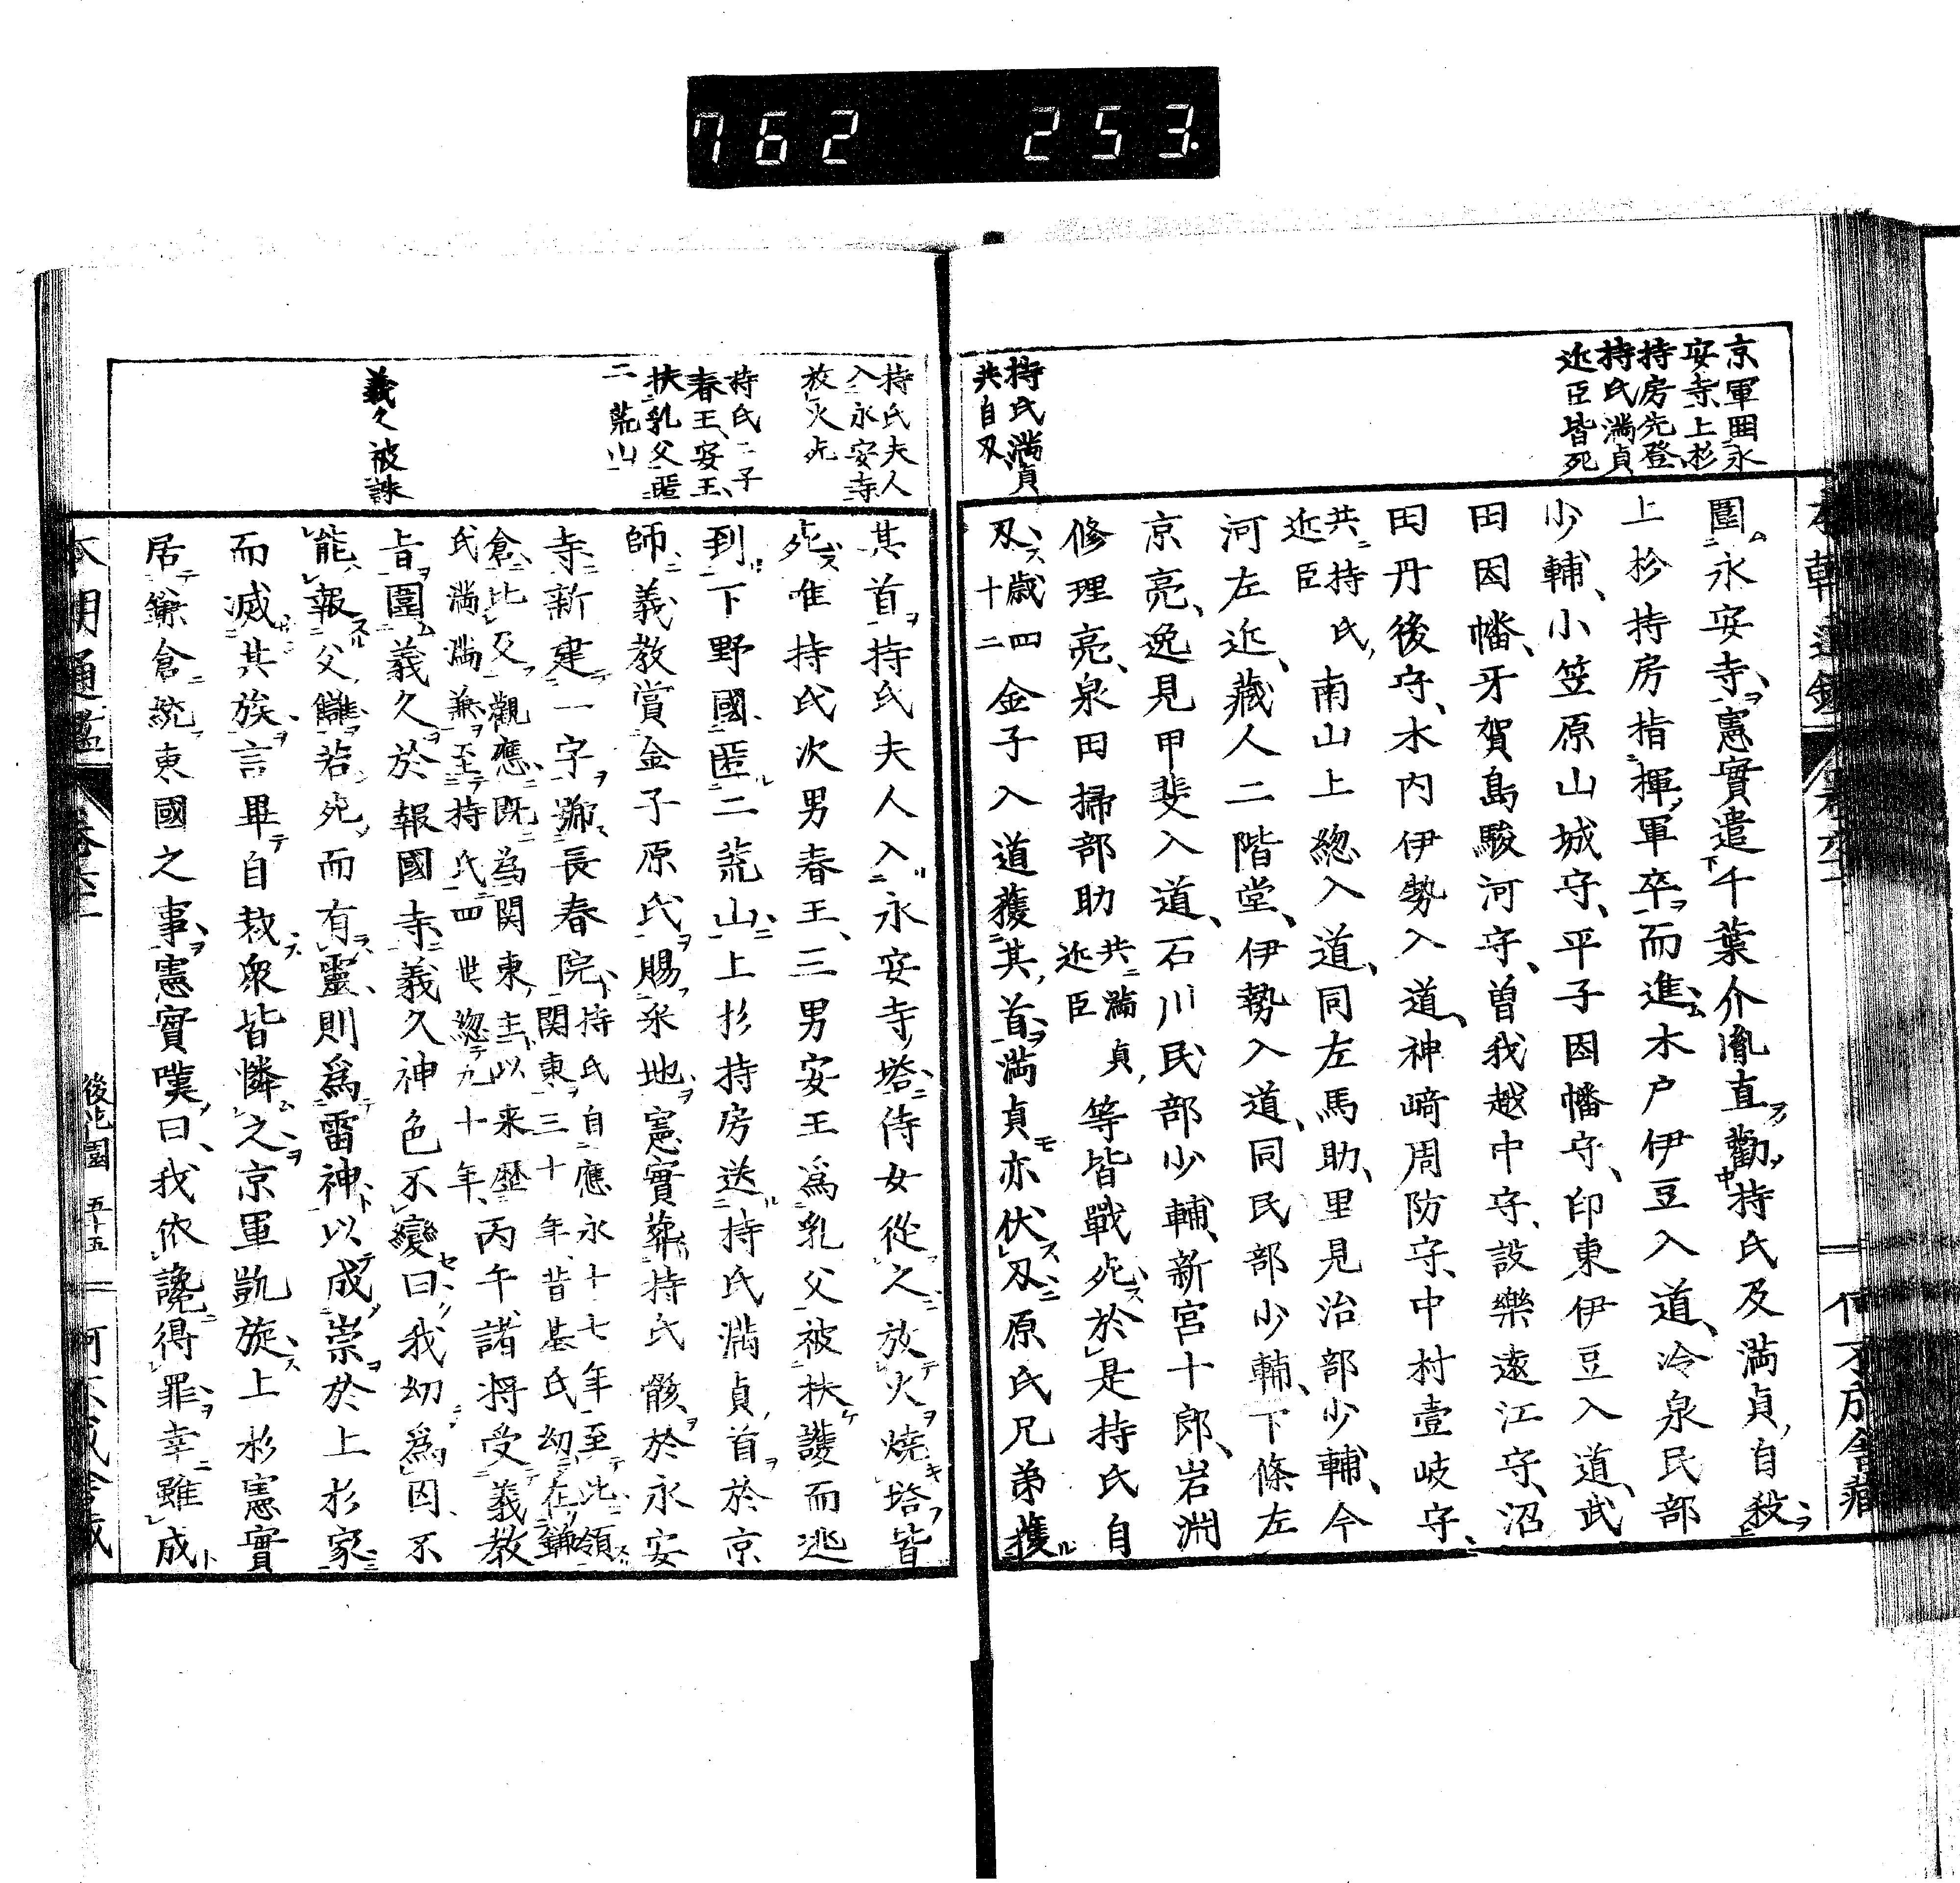 762 253.
京軍囲永
安寺上杉
持房先登
持氏満貞
近臣皆死
持氏満貞
共自刃
圍永安寺憲實遣千葉介胤直勸持氏及満貞自殺
上杉持房指揮軍卒而進木戸伊豆入道冷泉民部
少輔小笠原山城守平子因幡守印東伊豆入道武
田因幡牙賀島駿河守曽我越中守設樂遠江守沼
田丹後守木内伊勢入道神﨑周防守中村壹岐守
共持氏
近臣
南山上總入道同左馬助里見治部少輔今
河左近藏人二階堂伊勢入道同民部少輔下條左
京亮逸見甲斐入道石川民部少輔新宮十郎岩淵
修理亮泉田掃部助
共満貞
近臣
等皆戰死於是持氏自
刃
歳四
十二
金子入道獲其首満貞亦伏刃原氏兄弟獲
持氏夫人
入永安寺
放火死
持氏二子
春王安王
扶乳父匿
二荒山
義久被誅
其首持氏夫人入永安寺塔侍女從之放火燒塔皆
死唯持氏次男春王三男安王爲乳父被扶護而逃
到下野國匿二荒山上杉持房送持氏満貞首於京
師義教賞金子原氏賜釆地憲實葬持氏骸於永安
寺新建一宇號長春院
持氏自應永十七年至此領
関東三十年昔基氏幼在鎌
倉比及觀應既為関東主以来歴
氏満満兼至持氏四世總九十年
丙午諸将受義教
旨圍義久於報國寺義久神色不變曰我幼爲囚不
能報父讎若死而有靈則爲雷神以成崇於上杉家
而滅其族言畢自裁衆皆憐之京軍凱旋上杉憲實
居鎌倉統東國之事憲實嘆曰我依讒得罪幸雖成
本朝通鑑
後花園
五十五